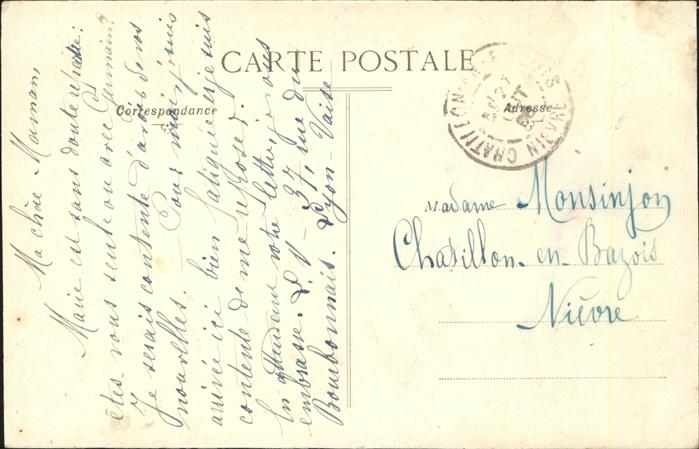 CARTE POSTALE
Correspondance
Adresse
Ma chère Maman,
Marie est sans doute
êtes vous seule ou avec Germain?
Je serais contente d'avoir de vos
nouvelles. Pour moi je suis
arrivée ici bien fatiguée et je suis
contente de me reposer.
En attendant votre lettre je vous
embrasse. 37, rue du
Bourbonnais. Lyon-Vaise
Madame Monsinjon
Chatillon-en-Bazois
Nièvre
CHATILLON